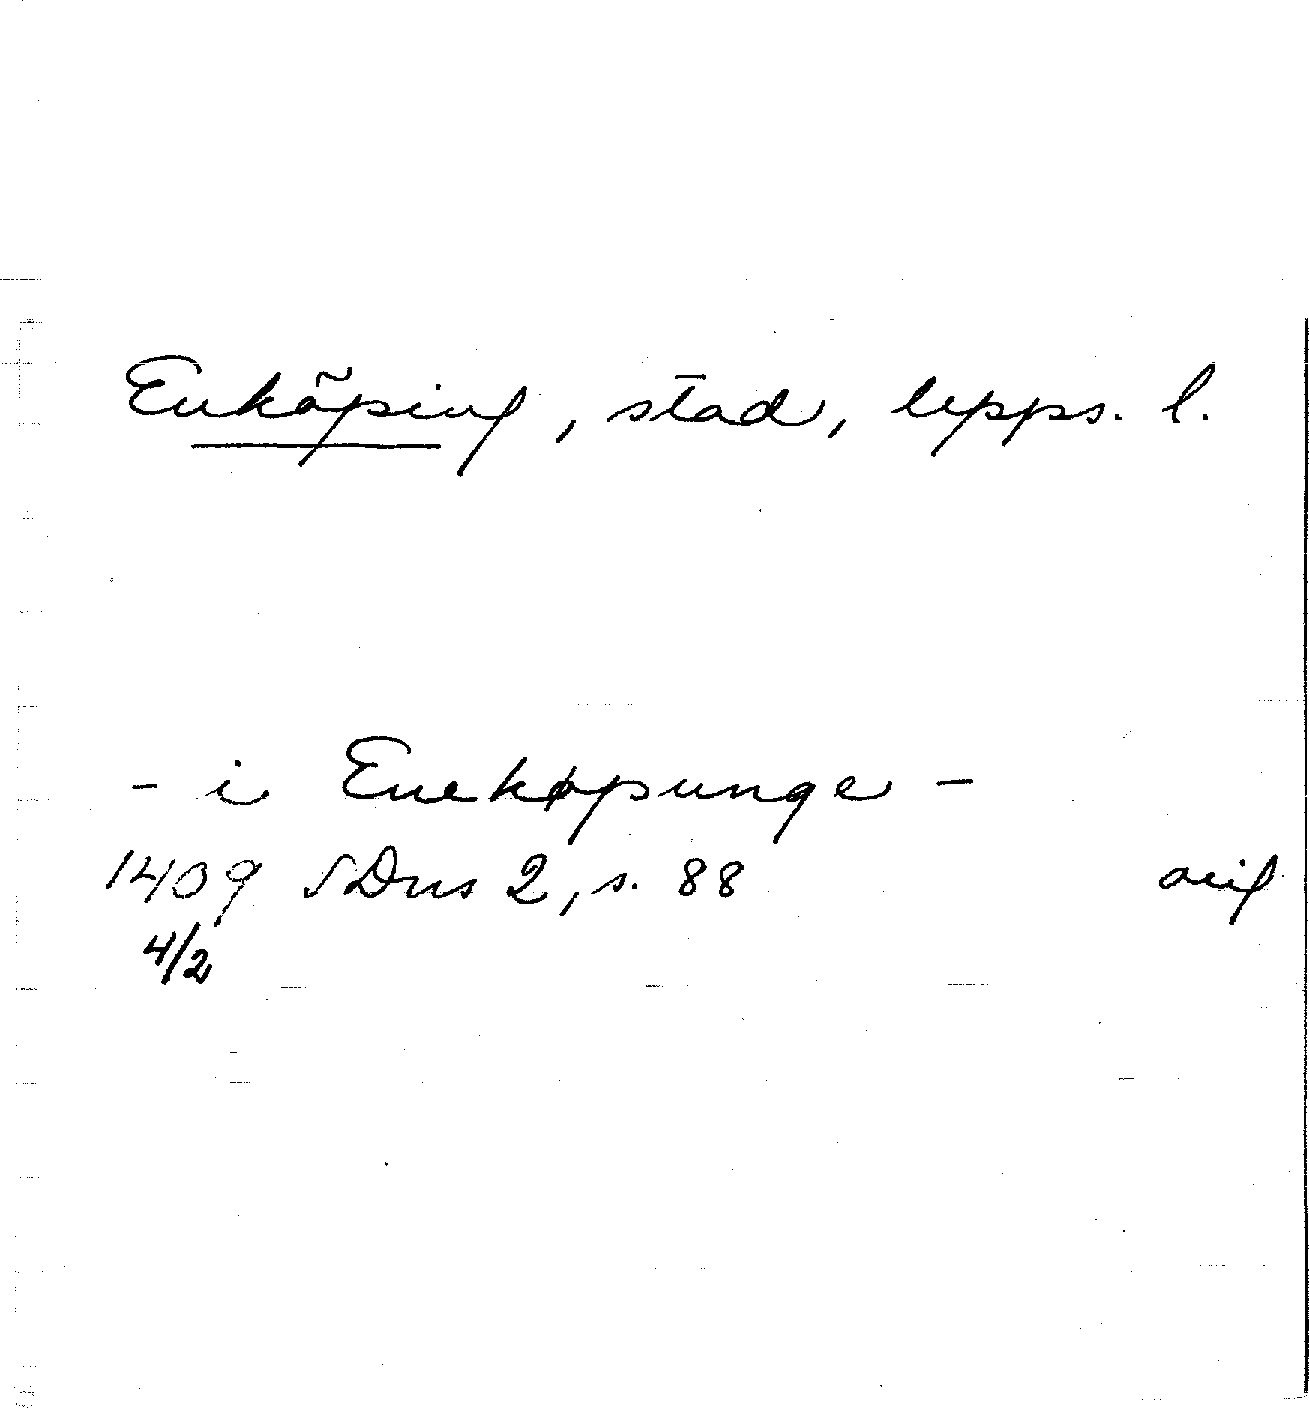 Enköping, stad, Upps. l.
- i Eneköpunge -
1409 SDns 2, s. 88 orig
4/2